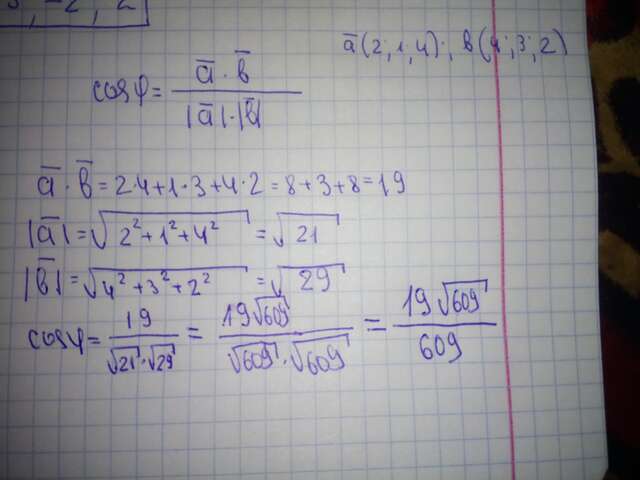 -2, 2
ā(2; 1, 4); b̄(4; 3; 2)
cosφ = (ā · b̄) / (|ā| · |b̄|)
ā · b̄ = 2·4+1·3+4·2 = 8+3+8=19
|ā| = √(2²+1²+4²) = √21
|b̄| = √(4²+3²+2²) = √29
cosφ = 19 / (√21 · √29) = 19√609 / (√609 · √609) = 19√609 / 609